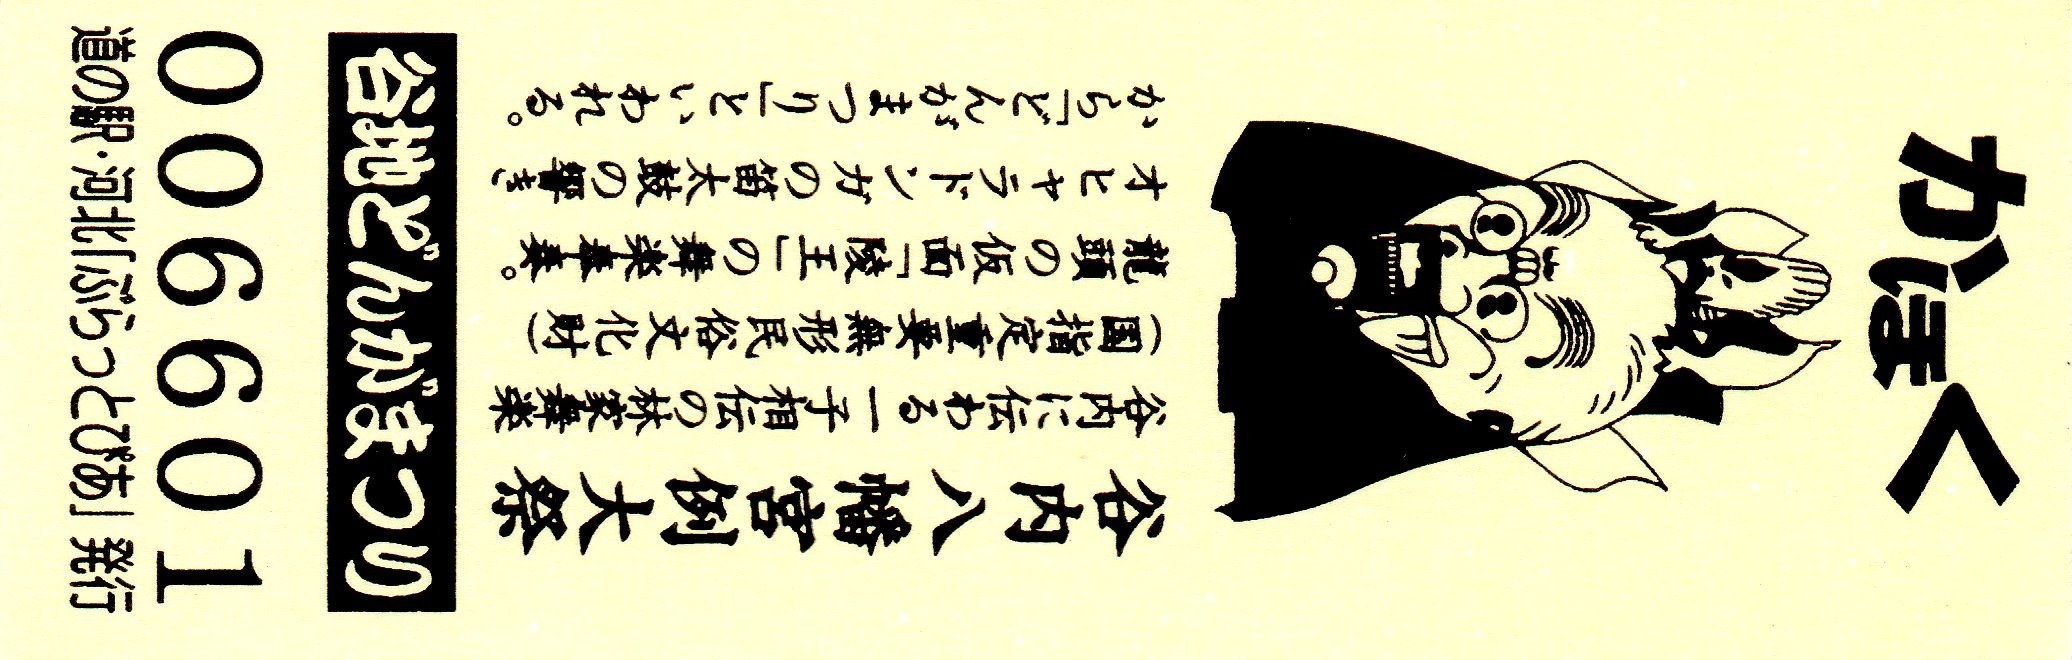 かほく
谷内八幡宮例大祭
谷内に伝わる一子相伝の林家舞楽
(国指定重要無形民俗文化財)
龍頭の仮面「陵王」の舞楽奉奏。
オヒャラドンガの笛太鼓の響き
から「どんがまつり」といわれる。
谷地どんがまつり
006601
道の駅・河北「ぶらっとぴあ」発行